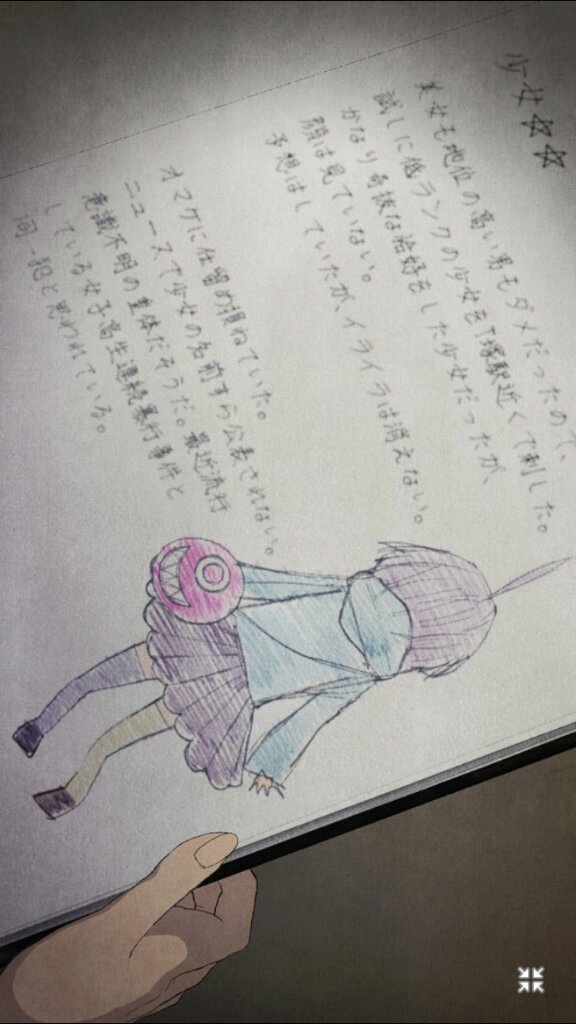 少女☆☆
美女も地位の高い男もダメだったので、
試しに低ランクの少女をT塚駅近くで刺した。
かなり奇抜な格好をした少女だったが、
顔は見ていない。
予想はしていたが、イライラは消えない。
オマケに仕留め損ねていた。
ニュースで少女の名前すら公表されない。
意識不明の重体だそうだ。最近流行
している女子高生連続暴行事件と
同一犯と思われている。